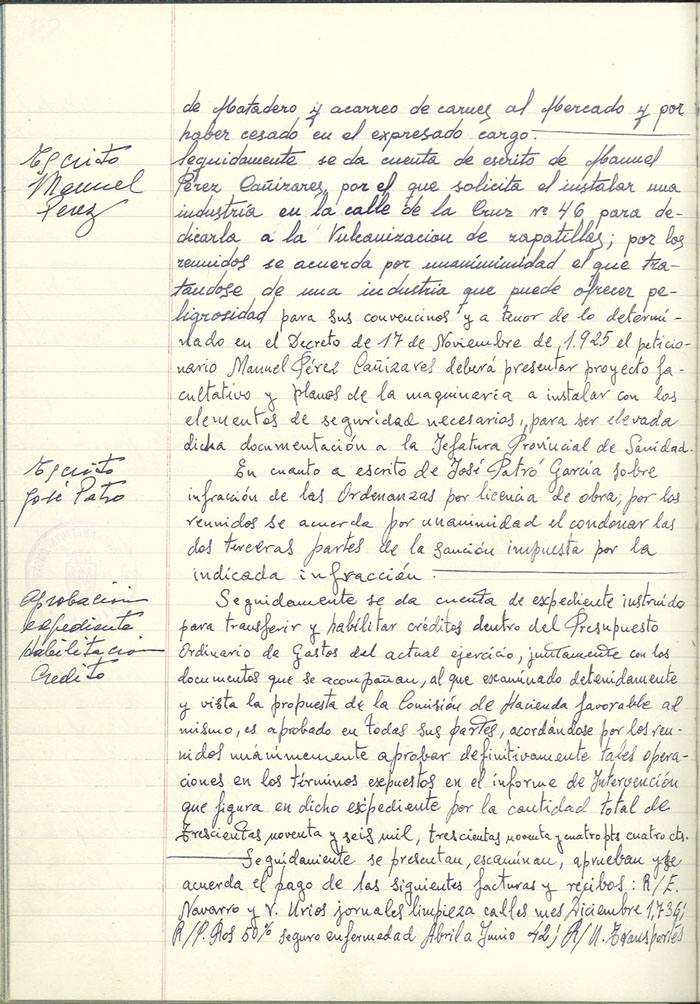 de Matadero y acarreo de carnes al Mercado y por
haber cesado en el expresado cargo.
Escrito
Manuel
Perez
Seguidamente se da cuenta de escrito de Manuel
Pérez Cañizares, por el que solicita el instalar una
industria en la calle de la Cruz nº 46 para de-
dicarla a la Vulcanizacion de zapatillas; por los
reunidos se acuerda por unanimidad el que tra-
tandose de una industria que puede ofrecer pe-
ligrosidad para sus convecinos y a tenor de lo determi-
nado en el Decreto de 17 de Noviembre de 1.925 el peticio-
nario Manuel Pérez Cañizares deberá presentar proyecto fa-
cultativo y planos de la maquinaria a instalar con los
elementos de seguridad necesarios, para ser elevada
dicha documentación a la Jefatura Provincial de Sanidad.
Escrito
José Patro
En cuanto a escrito de José Patró García sobre
infracción de las Ordenanzas por licencia de obra; por los
reunidos se acuerda por unanimidad el condonar las
dos terceras partes de la sanción impuesta por la
indicada infracción.
Aprobacion
expediente
Habilitacion
Credito
Seguidamente se da cuenta de expediente instruido
para transferir y habilitar créditos dentro del Presupuesto
Ordinario de Gastos del actual ejercicio, juntamente con los
documentos que se acompañan, al que examinado detenidamente
y vista la propuesta de la Comisión de Hacienda favorable al
mismo, es aprobado en todas sus partes, acordándose por los reu-
nidos unánimemente aprobar definitivamente tales opera-
ciones en los términos expuestos en el informe de Intervención
que figura en dicho expediente por la cantidad total de
Trescientas noventa y seis mil, trescientas noventa y cuatro pts cuatro cts.
Seguidamente se presentan, escaminan, aprueban y se
acuerda el pago de las siguientes facturas y recibos: R/E.
Navarro y V. Urios jornales limpieza calles mes Diciembre 1,736;
R/P. Ros 50% seguro enfermedad Abril a Junio 42; R/U. Transportes